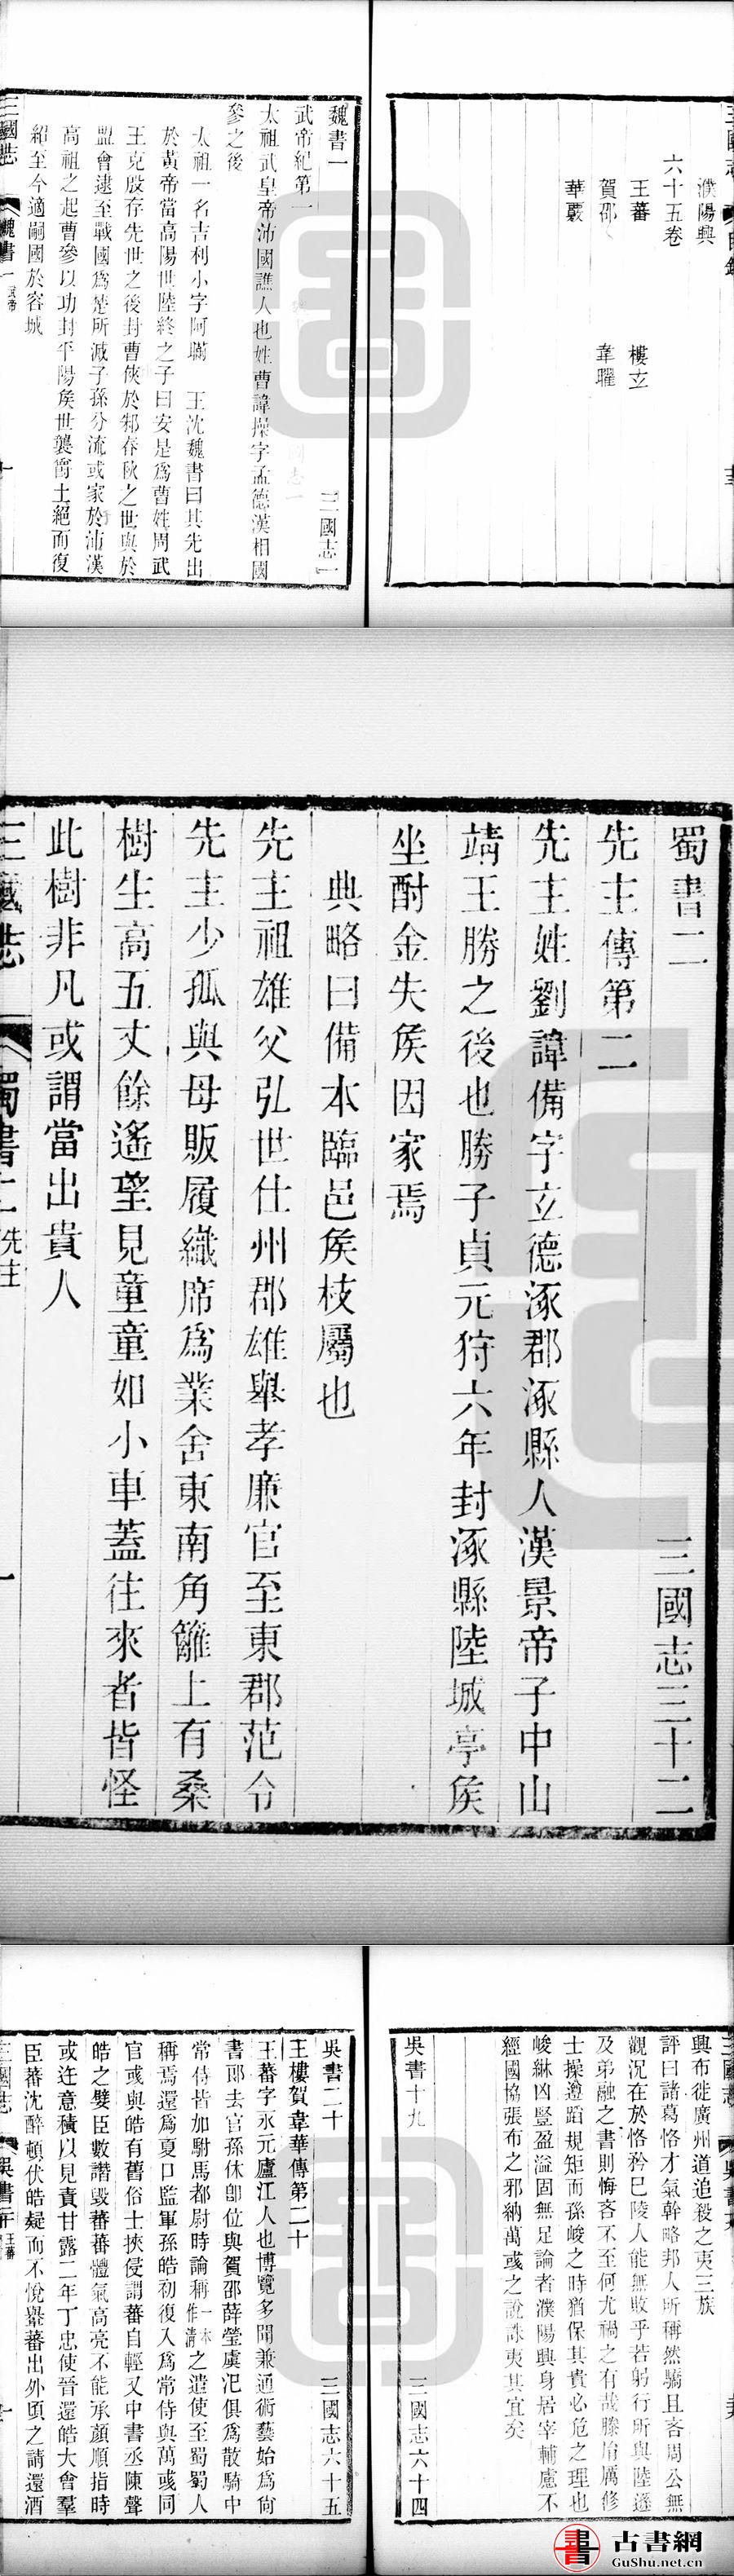 三國志
目錄
濮陽興
六十五卷
王蕃 樓玄
賀邵 韋曜
華覈
魏書一 三國志一
武帝紀第一
太祖武皇帝沛國譙人也姓曹諱操字孟德漢相國
參之後
太祖一名吉利小字阿瞞 王沈魏書曰其先出
於黃帝當高陽世陸終之子曰安是爲曹姓周武
王克殷存先世之後封曹俠於邾春秋之世與於
盟會逮至戰國爲楚所滅子孫分流或家於沛漢
高祖之起曹參以功封平陽侯世襲爵土絕而復
紹至今適嗣國於容城
三國志 魏書一 武帝 一
蜀書二 三國志三十二
先主傳第二
先主姓劉諱備字玄德涿郡涿縣人漢景帝子中山
靖王勝之後也勝子貞元狩六年封涿縣陸城亭侯
坐酎金失侯因家焉
典略曰備本臨邑侯枝屬也
先主祖雄父弘世仕州郡雄舉孝廉官至東郡范令
先主少孤與母販履織席爲業舍東南角籬上有桑
樹生高五丈餘遙望見童童如小車蓋往來者皆怪
此樹非凡或謂當出貴人
三國志 蜀書二 先主 一
三國志 吳書十九
興布徙廣州道追殺之夷三族
評曰諸葛恪才氣幹略邦人所稱然驕且吝周公無
觀況在於恪矜己陵人能無敗乎若躬行所與陸遜
及弟融之書則悔吝不至何尤禍之有哉滕胤厲修
士操遵蹈規矩而孫峻之時猶保其貴必危之理也
峻綝凶豎盈溢固無足論者濮陽興身居宰輔慮不
經國協張布之邪納萬彧之說誅夷其宜矣
吳書十九 三國志六十四
吳書二十 三國志六十五
王樓賀韋華傳第二十
王蕃字永元廬江人也博覽多聞兼通術藝始爲尙
書郎去官孫休卽位與賀邵薛瑩虞汜俱爲散騎中
常侍皆加駙馬都尉時論稱一本作清之遣使至蜀蜀人
稱焉還爲夏口監軍孫皓初復入爲常侍與萬彧同
官彧與皓有舊俗士挾侵謂蕃自輕又中書丞陳聲
皓之嬖臣數譖毀蕃蕃體氣高亮不能承顏順指時
或迕意積以見責甘露二年丁忠使晉還皓大會羣
臣蕃沈醉頓伏皓疑而不悅轝蕃出外頃之請還酒
三國志 吳書二十 王蕃 一
書 古書網
GuShu.net.cn